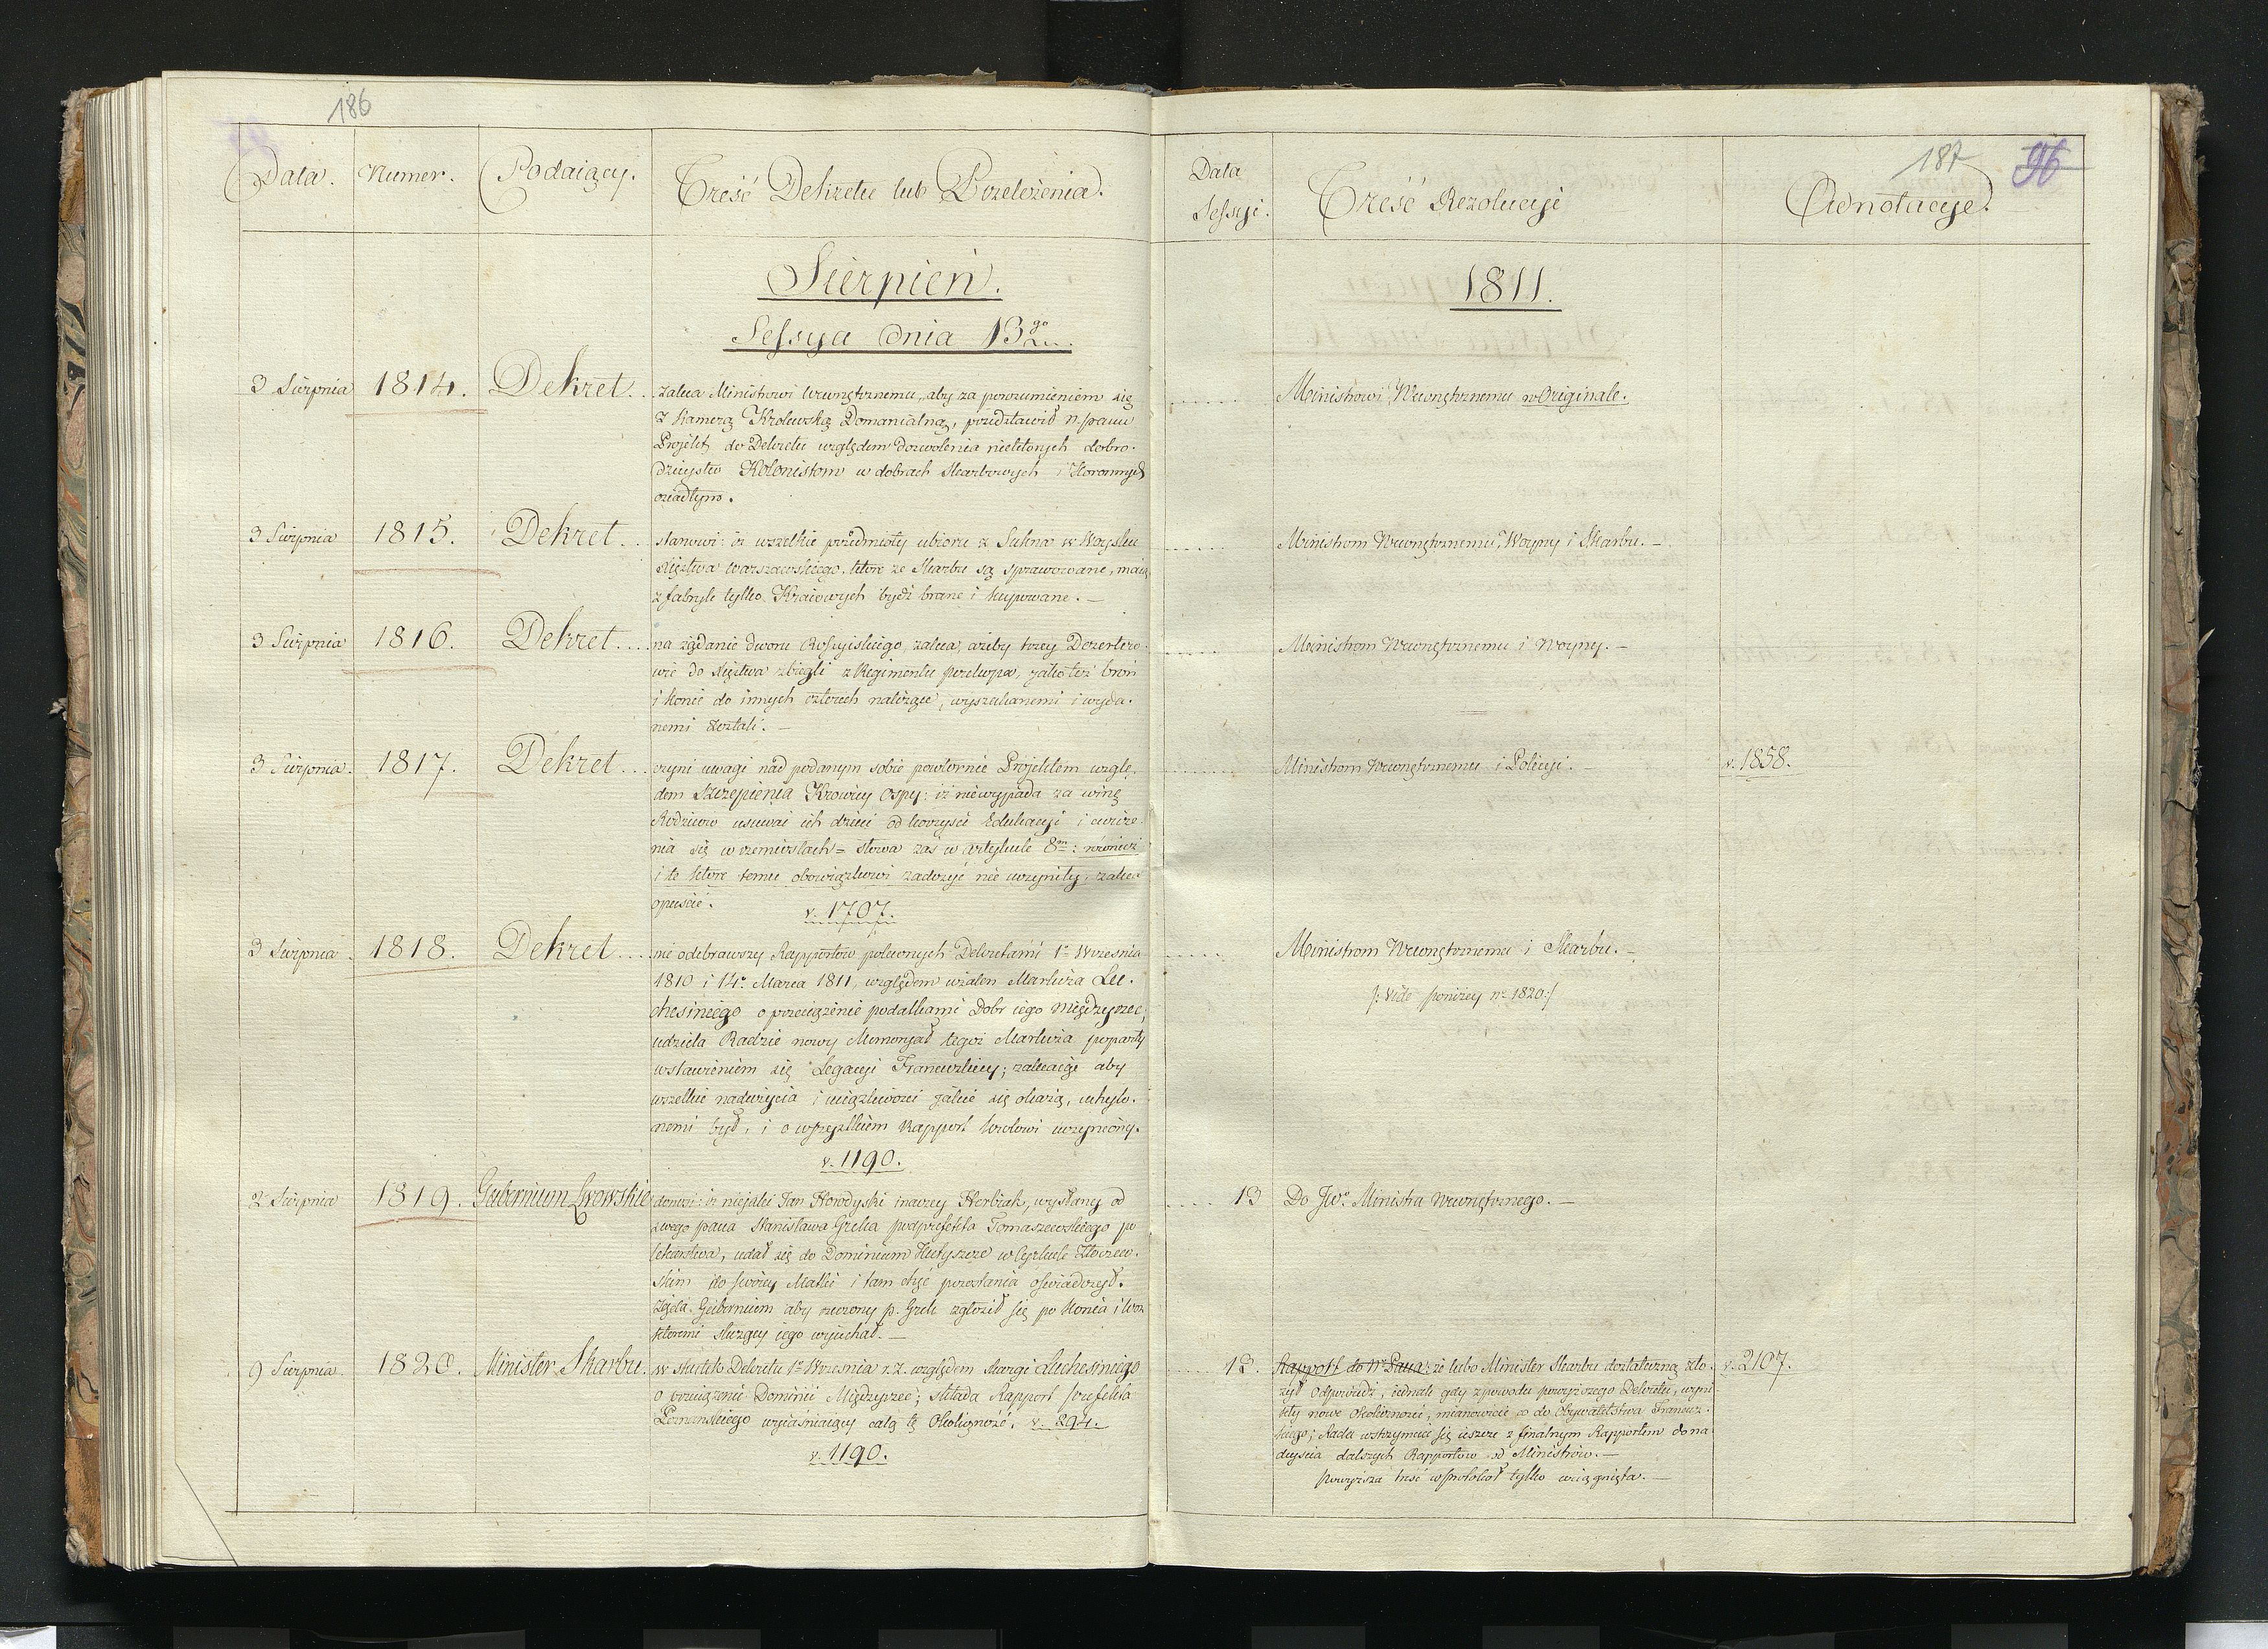 186
Data. Numer. Podaiący. Treść Dekretu lub Przełożenia.
Sierpień.
Sessya dnia 13go
3 Sierpnia 1814. Dekret. . . zaleca Ministrowi Wewnętrznemu, aby za porozumieniem się
z Kamerą Krolewską Domanialną, przedstawił N. panu
Projekt do Dekretu względem dozwolenia niektorych dobro-
dzieystw Kolonistom w dobrach Skarbowych i Koronnych
osiadłym.
3 Sierpnia 1815. Dekret. . . stanowi: iż wszelkie przedmioty ubioru z Sukna w Woysku
Xięztwa Warszawskiego, które ze Skarbu są sprawowane, maią
z fabryk tylko Kraiowych bydź brane i kupowane. —
3 Sierpnia 1816. Dekret. . . . na żądanie dworu Rossyiskiego, zaleca, ażeby trzey Dezertero-
wie do Xięztwa zbiegli z Regimentu, jako też broń
i Konie do innych czterech należące, wyszukanemi i wyda-
nemi zostali. —
3 Sierpnia. 1817. Dekret. . . czyni uwagi nad podanym sobie powtornie Projektem wzglę-
dem Szczepienia Krowiey Ospy: iż niewypada za winę
Rodziców usuwać ich dzieci od korzyści Edukacyi i ćwicze-
nia się w rzemiosłach = słowa zaś w artykule 8m: również
i te które temu obowiązkowi zadosyć nie uczyniły, zaleca
opuścić.
v. 1707.
3 Sierpnia. 1818. Dekret. . . . nie odebrawszy Rapportów poleconych Dekretami 1o Wrzesnia
1810 i 14o Marca 1811, względem użaleń Markiza Lu-
chesiniego o przeciążenie podatkami Dobr iego Międzyrzec,
udziela Radzie nowy Memoryał tegoż Markiza poparty
wstawieniem się Legacyi Francuzkiey; zalecaiąc aby
wszelkie nadużycia i uciążliwości jakie się okażą, uchylo-
nemi były, i o wszystkiem Rapport Krolowi uczyniony.
v. 1190.
2 Sierpnia 1819. Gubernium Lwowskie donosi: iż niejaki Jan Horodyski inaczey Herbżak, wysłany od
swego pana Stanisława Grela podprefekta Tomaszewskiego po
lekarstwa, udał się do Dominium Hutyszcze w Cyrkule Złoczew-
skim do swoiey Matki i tam chęć pozostania oświadczył.
Żąda Gubernium aby rzeczony p. Grel zgłosił się po Konia i woz
któremi służący iego wyjechał. —
9 Sierpnia. 1820. Minister Skarbu. w skutek Dekretu 1o Wrzesnia r. z. względem skargi Luchesiniego
o uciążenie Dominii Międzyrzec; składa Rapport prefekta
Poznanskiego wyiaśniaiący całą tę okoliczność. v. 894.
v. 1190.
187 96
Data Sessyi. Treść Rezolucyi Adnotacye.
1811.
Ministrowi Wewnętrznemu w Originale.
Ministrom Wewnętrznemu, Woyny i Skarbu. —
Ministrom Wewnętrznemu i Woyny. —
Ministrom Wewnętrznemu i Policyi. — v. 1858.
Ministrom Wewnętrznemu i Skarbu. —
/: Vide poniżey no 1820:/
13 Do JWo Ministra Wewnętrznego. —
13. Rapport do No Pana: że lubo Minister Skarbu dostateczną zło- v. 2107.
żył odpowiedź, iednak gdy z powodu powyższego Dekretu, wyni-
kły nowe okoliczności, mianowicie co do Obywatelstwa Francuz-
kiego; Rada wstrzymuie się ieszcze z finalnym Rapportem do na-
deyscia dalszych Rapportow od Ministrów. —
Powyższa treść w protokoł tylko wciągnięta. —